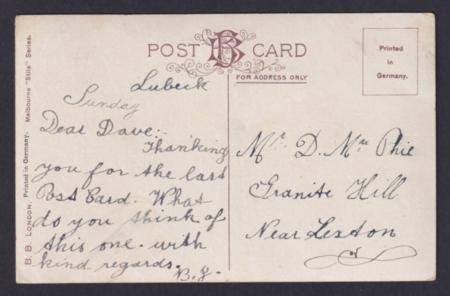 POST B CARD
FOR ADDRESS ONLY
Printed
in
Germany.
B. B. LONDON. Printed in Germany. Melbourne "Stile" Series.
Lubeck
Sunday
Dear Dave:-
Thanking
you for the last
Post Card. What
do you think of
this one. with
kind regards.
B.J.
Mr. D. Mc Phie
Granite Hill
Near Lexton